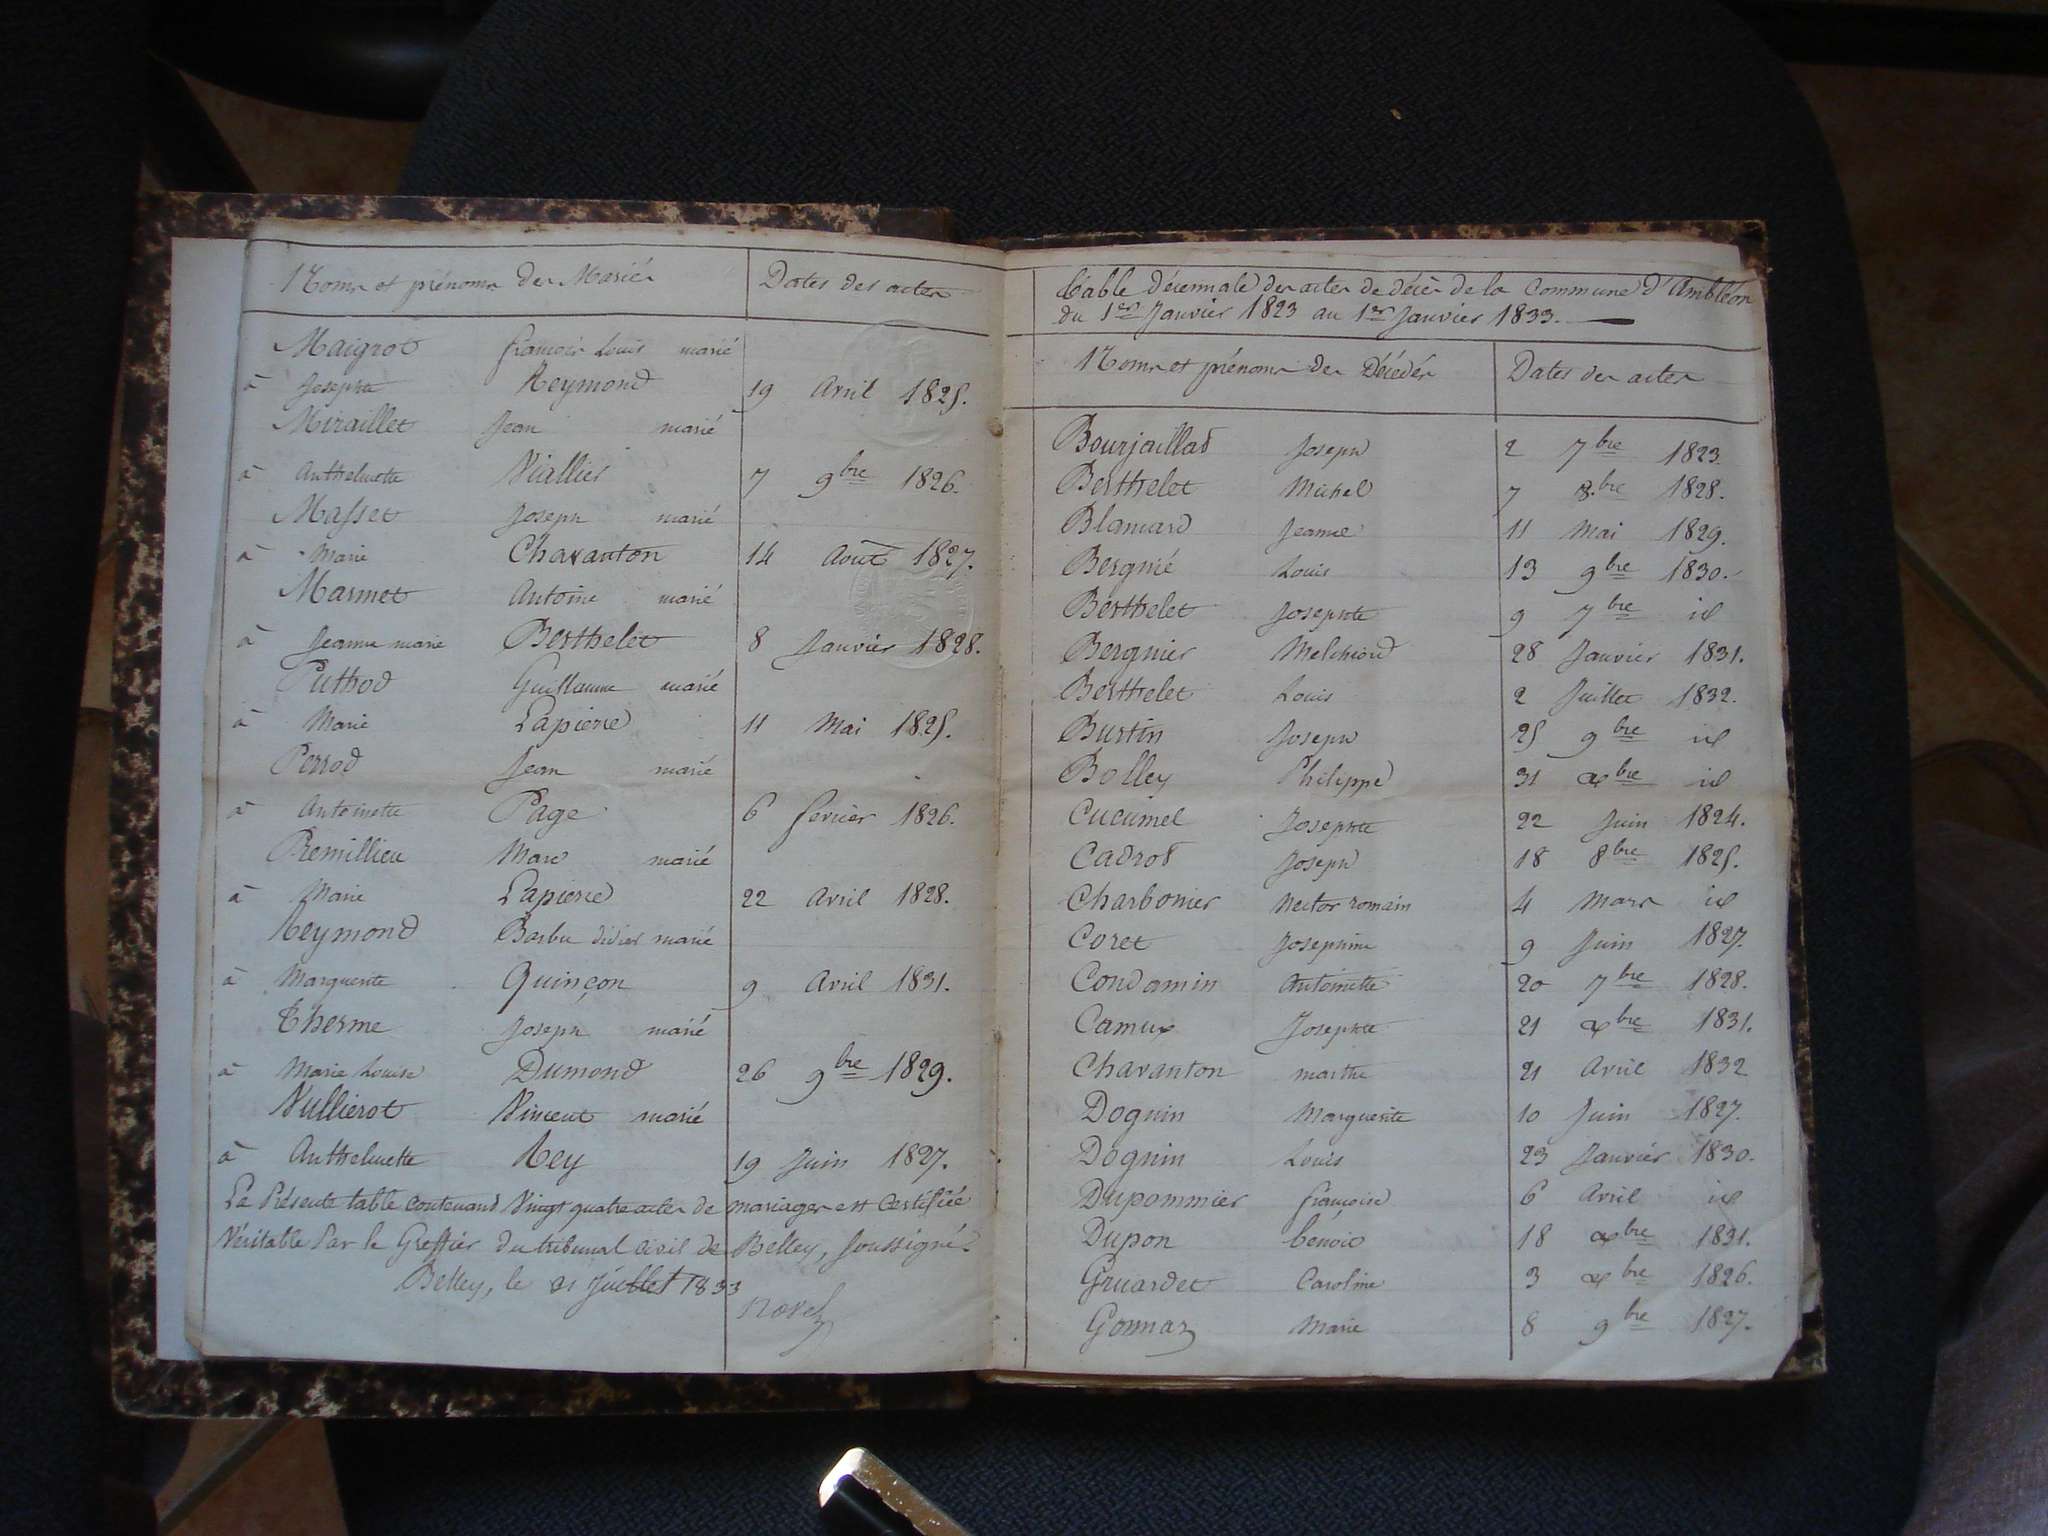 Noms et prénoms des Mariés Dates des actes
Maigrot françois Louis marié
à Josephte Reymond 19 Avril 1825.
Miraillet Jean marié
à Anthelmette Viallier 7 9bre 1826.
Masset Joseph marié
à Marie Chavanton 14 Août 1827.
Marmet Antoine marié
à Jeanne marie Berthelet 8 Janvier 1828.
Puthod Guillaume marié
à Marie Lapierre 11 Mai 1825.
Perrod Jean marié
à Antoinette Page 6 fevrier 1826.
Remillieu Marc marié
à Marie Lapierre 22 Avril 1828.
Reymond Barbu didier marié
à Marguerite Quinçon 9 Avril 1831.
Therme Joseph marié
à Marie Louise Dumond 26 9bre 1829.
Vullierot Vincent marié
à Anthelmette Rey 19 Juin 1827.
La Présente table contenand Vingt quatre actes de mariages est Certifiée
Véritable Par le Greffier du tribunal civil de Belley, soussigné.
Belley, le 21 Juillet 1833
Table décennale des actes de décès de la Commune d'Ambléon
du 1er Janvier 1823 au 1er Janvier 1833.
Noms et prénoms des Décédés Dates des actes
Bourjaillad Joseph 2 7bre 1823.
Berthelet Michel 7 8bre 1828.
Blancard Jeanne 11 Mai 1829.
Bergnié Louis 13 9bre 1830.
Berthelet Josephte 9 7bre id
Bergnier Melchiord 28 Janvier 1831.
Berthelet Louis 2 Juillet 1832.
Burtin Joseph 25 9bre id
Bolley Philippe 31 xbre id
Cucumel Josephte 22 Juin 1824.
Cadrot Joseph 18 8bre 1825.
Charbonier Hector romain 4 Mars id
Coret Josephine 9 Juin 1827.
Condamin Antoinette 20 7bre 1828.
Camux Josephte 21 xbre 1831.
Chavanton marthe 21 Avril 1832
Doguin Marguerite 10 Juin 1827.
Doguin Louis 23 Janvier 1830.
Dupommier françoise 6 Avril id
Dupon benoit 18 xbre 1831.
Gruardet Caroline 3 xbre 1826.
Gonnaz Marie 8 9bre 1827.